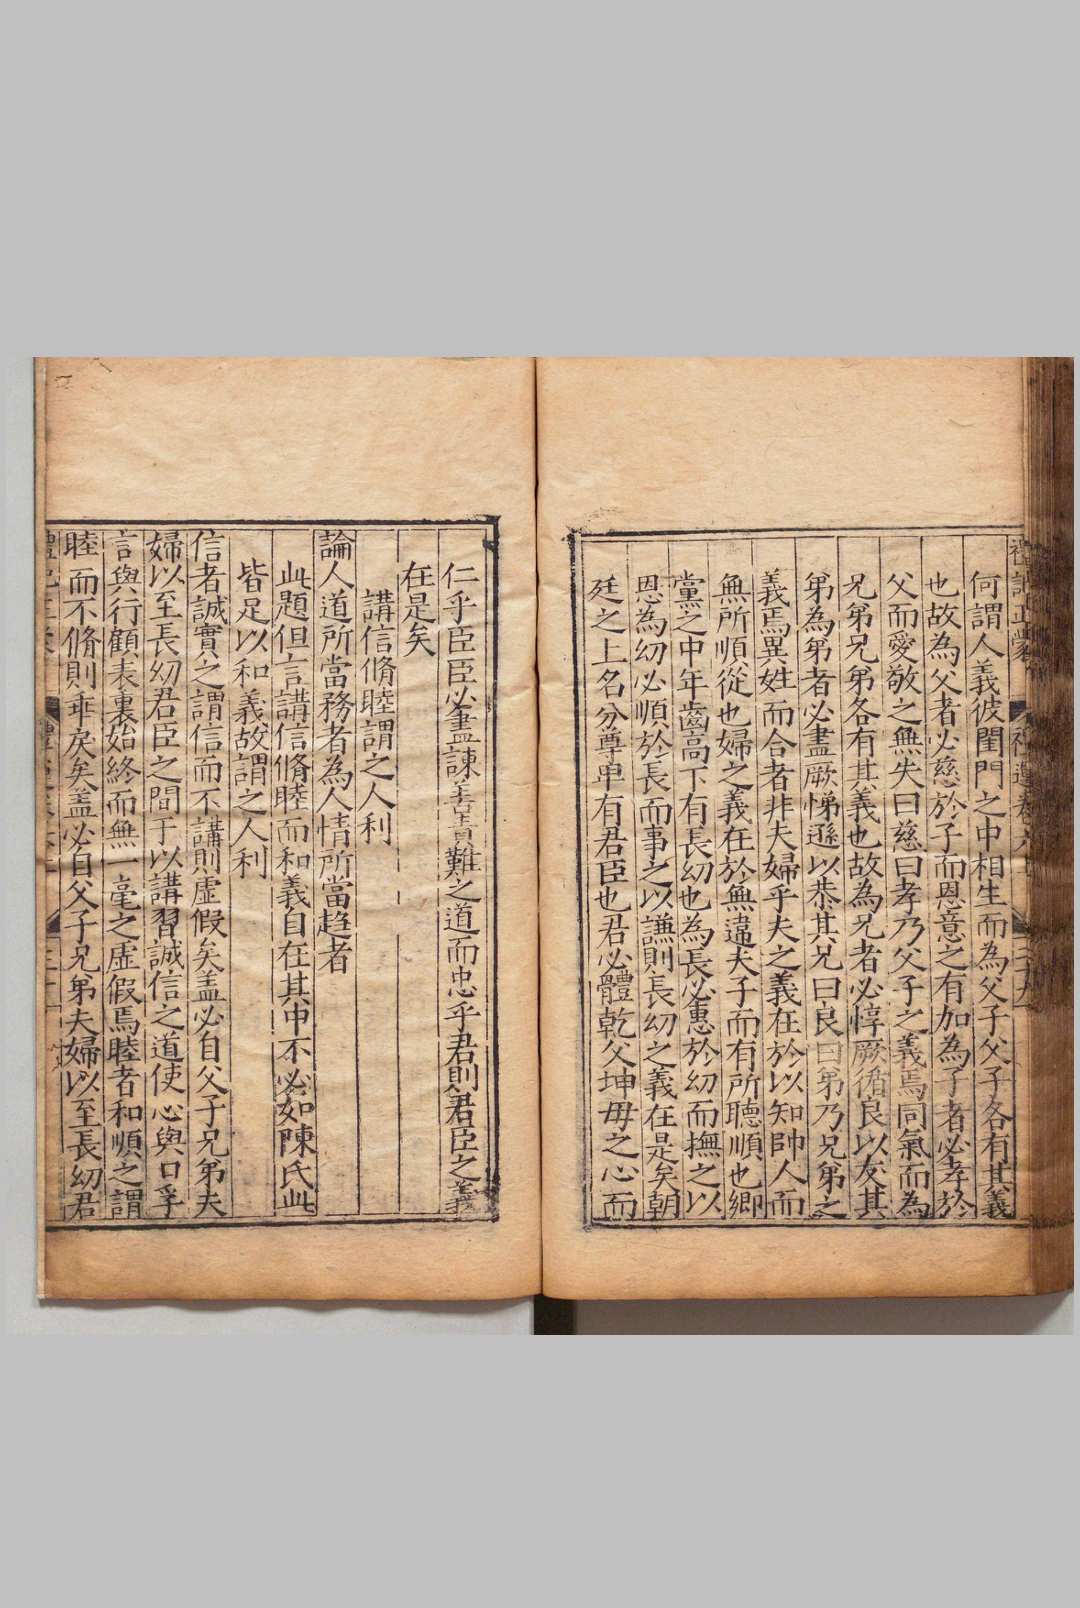 禮記正蒙 禮運卷六
何謂人義彼閨門之中相生而為父子父子各有其義
也故為父者必慈於子而恩意之有加為子者必孝於
父而愛敬之無失曰慈曰孝乃父子之義焉同氣而為
兄弟兄弟各有其義也故為兄者必惇厥循良以友其
弟為弟者必盡厥悌遜以恭其兄曰良曰弟乃兄弟之
義焉異姓而合者非夫婦乎夫之義在於以知帥人而
無所順從也婦之義在於無違夫子而有所聽順也鄉
黨之中年齒高下有長幼也為長必惠於幼而撫之以
恩為幼必順於長而事之以謙則長幼之義在是矣朝
廷之上名分尊卑有君臣也君必體乾父坤母之心而
仁乎臣臣必盡諫善責難之道而忠乎君則君臣之義
在是矣
講信脩睦謂之人利
論人道所當務者為人情所當趋者
此題但言講信脩睦而和義自在其中不必如陳氏此
皆足以和義故謂之人利
信者誠實之謂信而不講則虛假矣盖必自父子兄弟夫
婦以至長幼君臣之間于以講習誠信之道使心與口孚
言與行顧表裏始終而無一毫之虛假焉睦者和順之謂
睦而不脩則乖戾矣盖必自父子兄弟夫婦以至長幼君